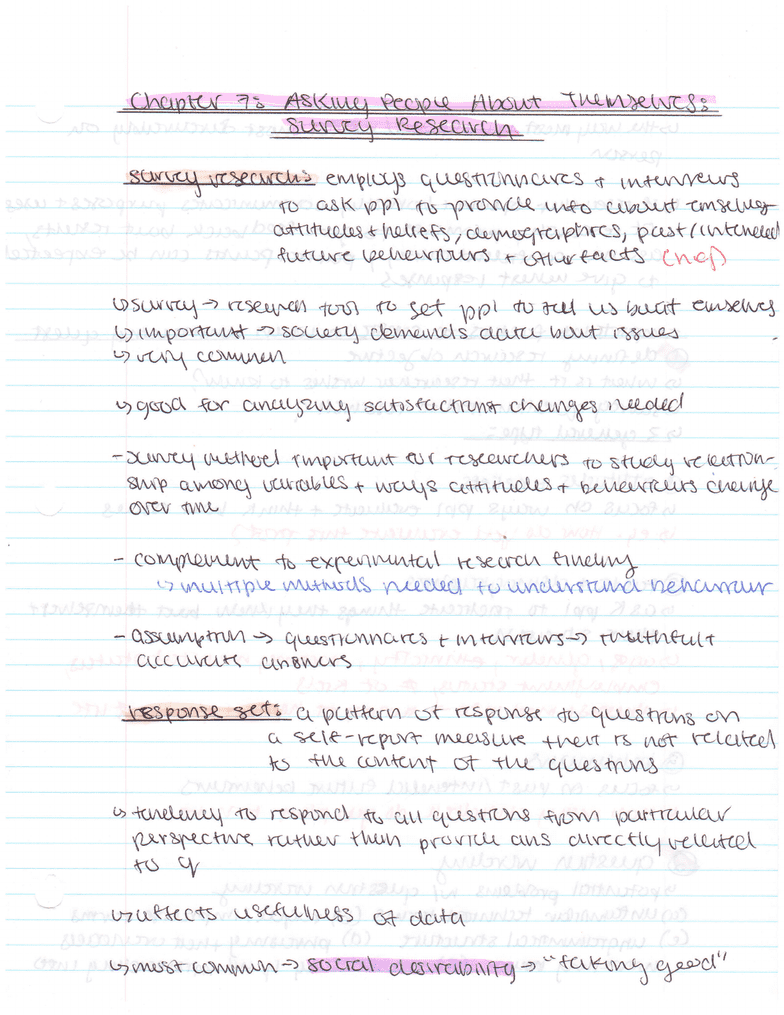 Chapter 7: Asking People About Themselves:
Survey Research
survey research: employs questionnaires + interviews
to ask ppl to provide info about emselves
attitudes + beliefs, demographics, past/intended
future behaviours + other facts
↳ survey → research tool to get ppl to tell us bout emselves
↳ important → society demands data bout issues
↳ very common
↳ good for analyzing satisfaction + changes needed
- survey method important for researchers to study relation-
ship among variables + ways attitudes + behaviours change
over time
- complement to experimental research finding
↳ multiple methods needed to understand behaviour
- assumption → questionnaires + interviews → truthful +
accurate answers
response set: a pattern of response to questions on
a self-report measure that is not related
to the content of the questions
↳ tendency to respond to all questions from particular
perspective rather than provide ans directly related
to q
↳ affects usefulness of data
↳ most common → social desirability → "faking good"